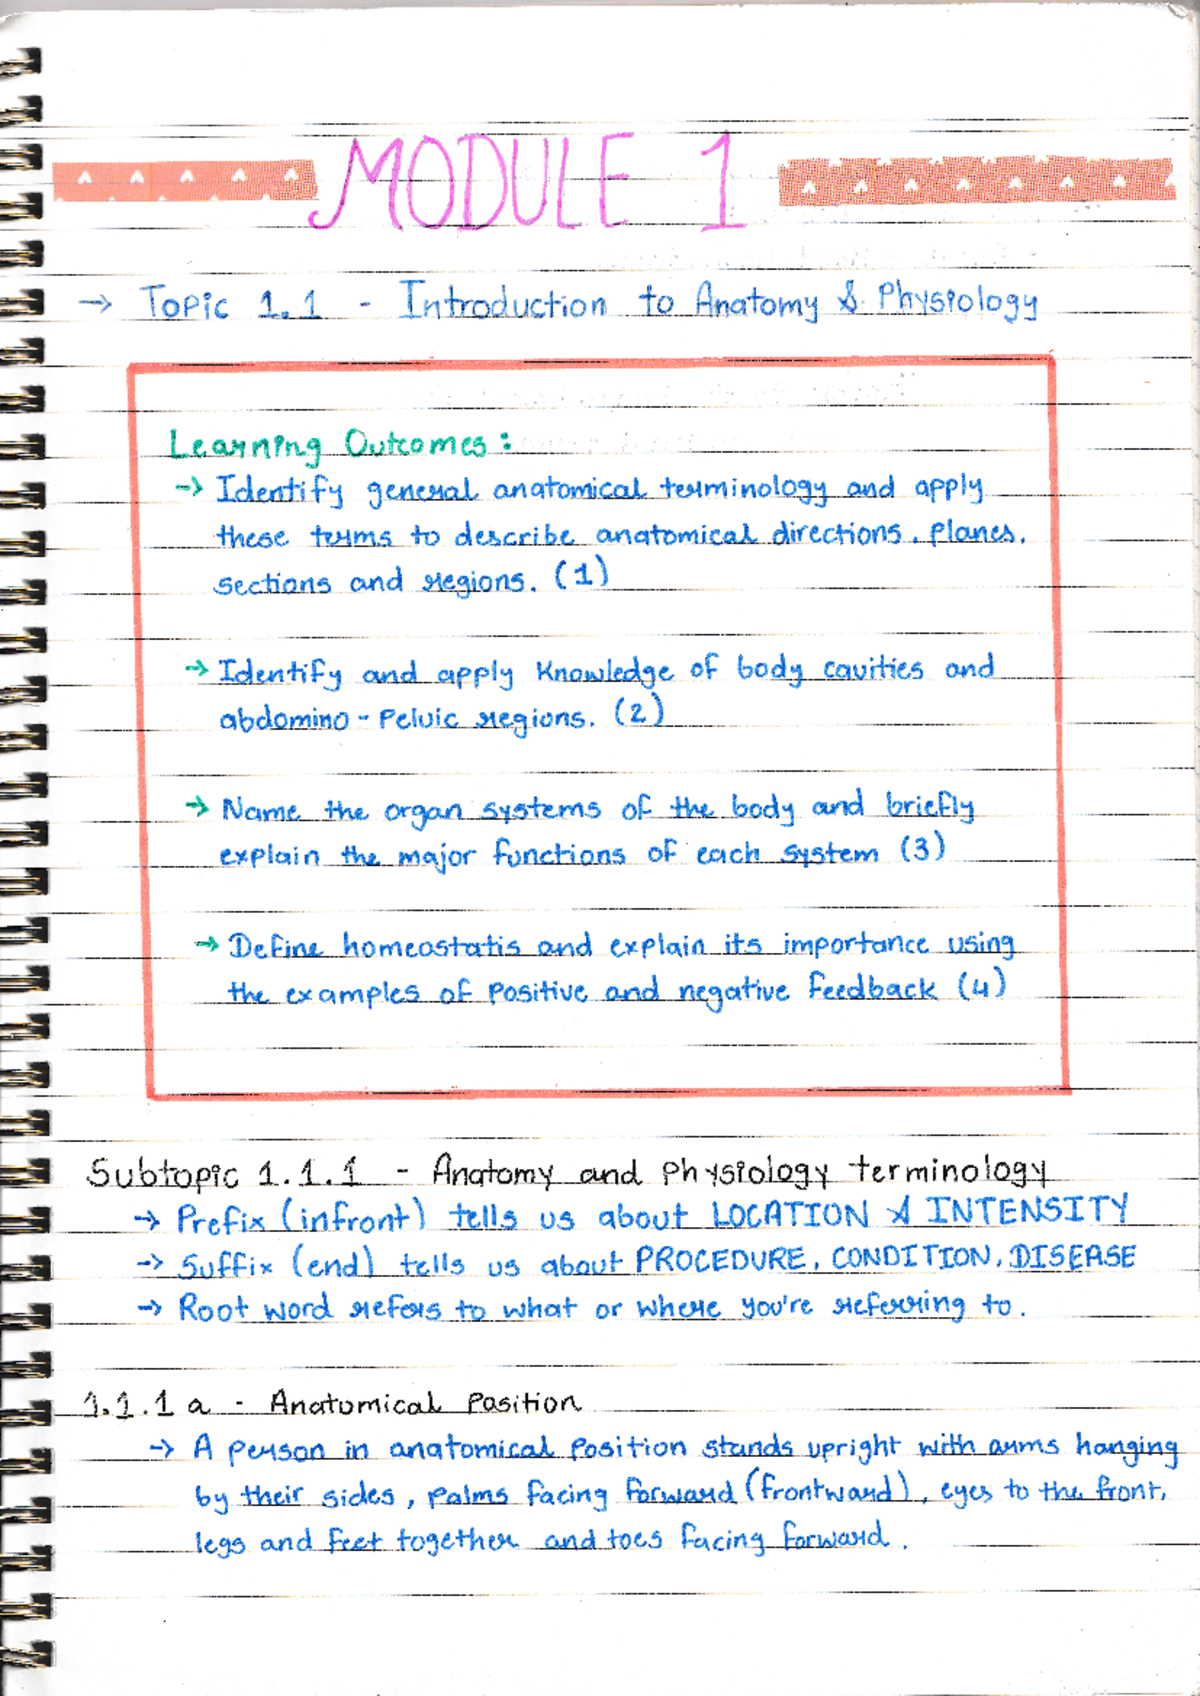 MODULE 1
→ Topic 1.1 - Introduction to Anatomy & Physiology
Learning Outcomes :
→ Identify general anatomical terminology and apply
these terms to describe anatomical directions, planes,
sections and regions. (1)
→ Identify and apply knowledge of body cavities and
abdomino - pelvic regions. (2)
→ Name the organ systems of the body and briefly
explain the major functions of each system (3)
→ Define homeostatis and explain its importance using
the examples of positive and negative feedback (4)
Subtopic 1.1.1 - Anatomy and physiology terminology
→ Prefix (infront) tells us about LOCATION & INTENSITY
→ Suffix (end) tells us about PROCEDURE, CONDITION, DISEASE
→ Root word refers to what or where you're referring to.
1.1.1 a - Anatomical Position
→ A person in anatomical position stands upright with arms hanging
by their sides, palms facing forward (frontward), eyes to the front,
legs and feet together and toes facing forward.